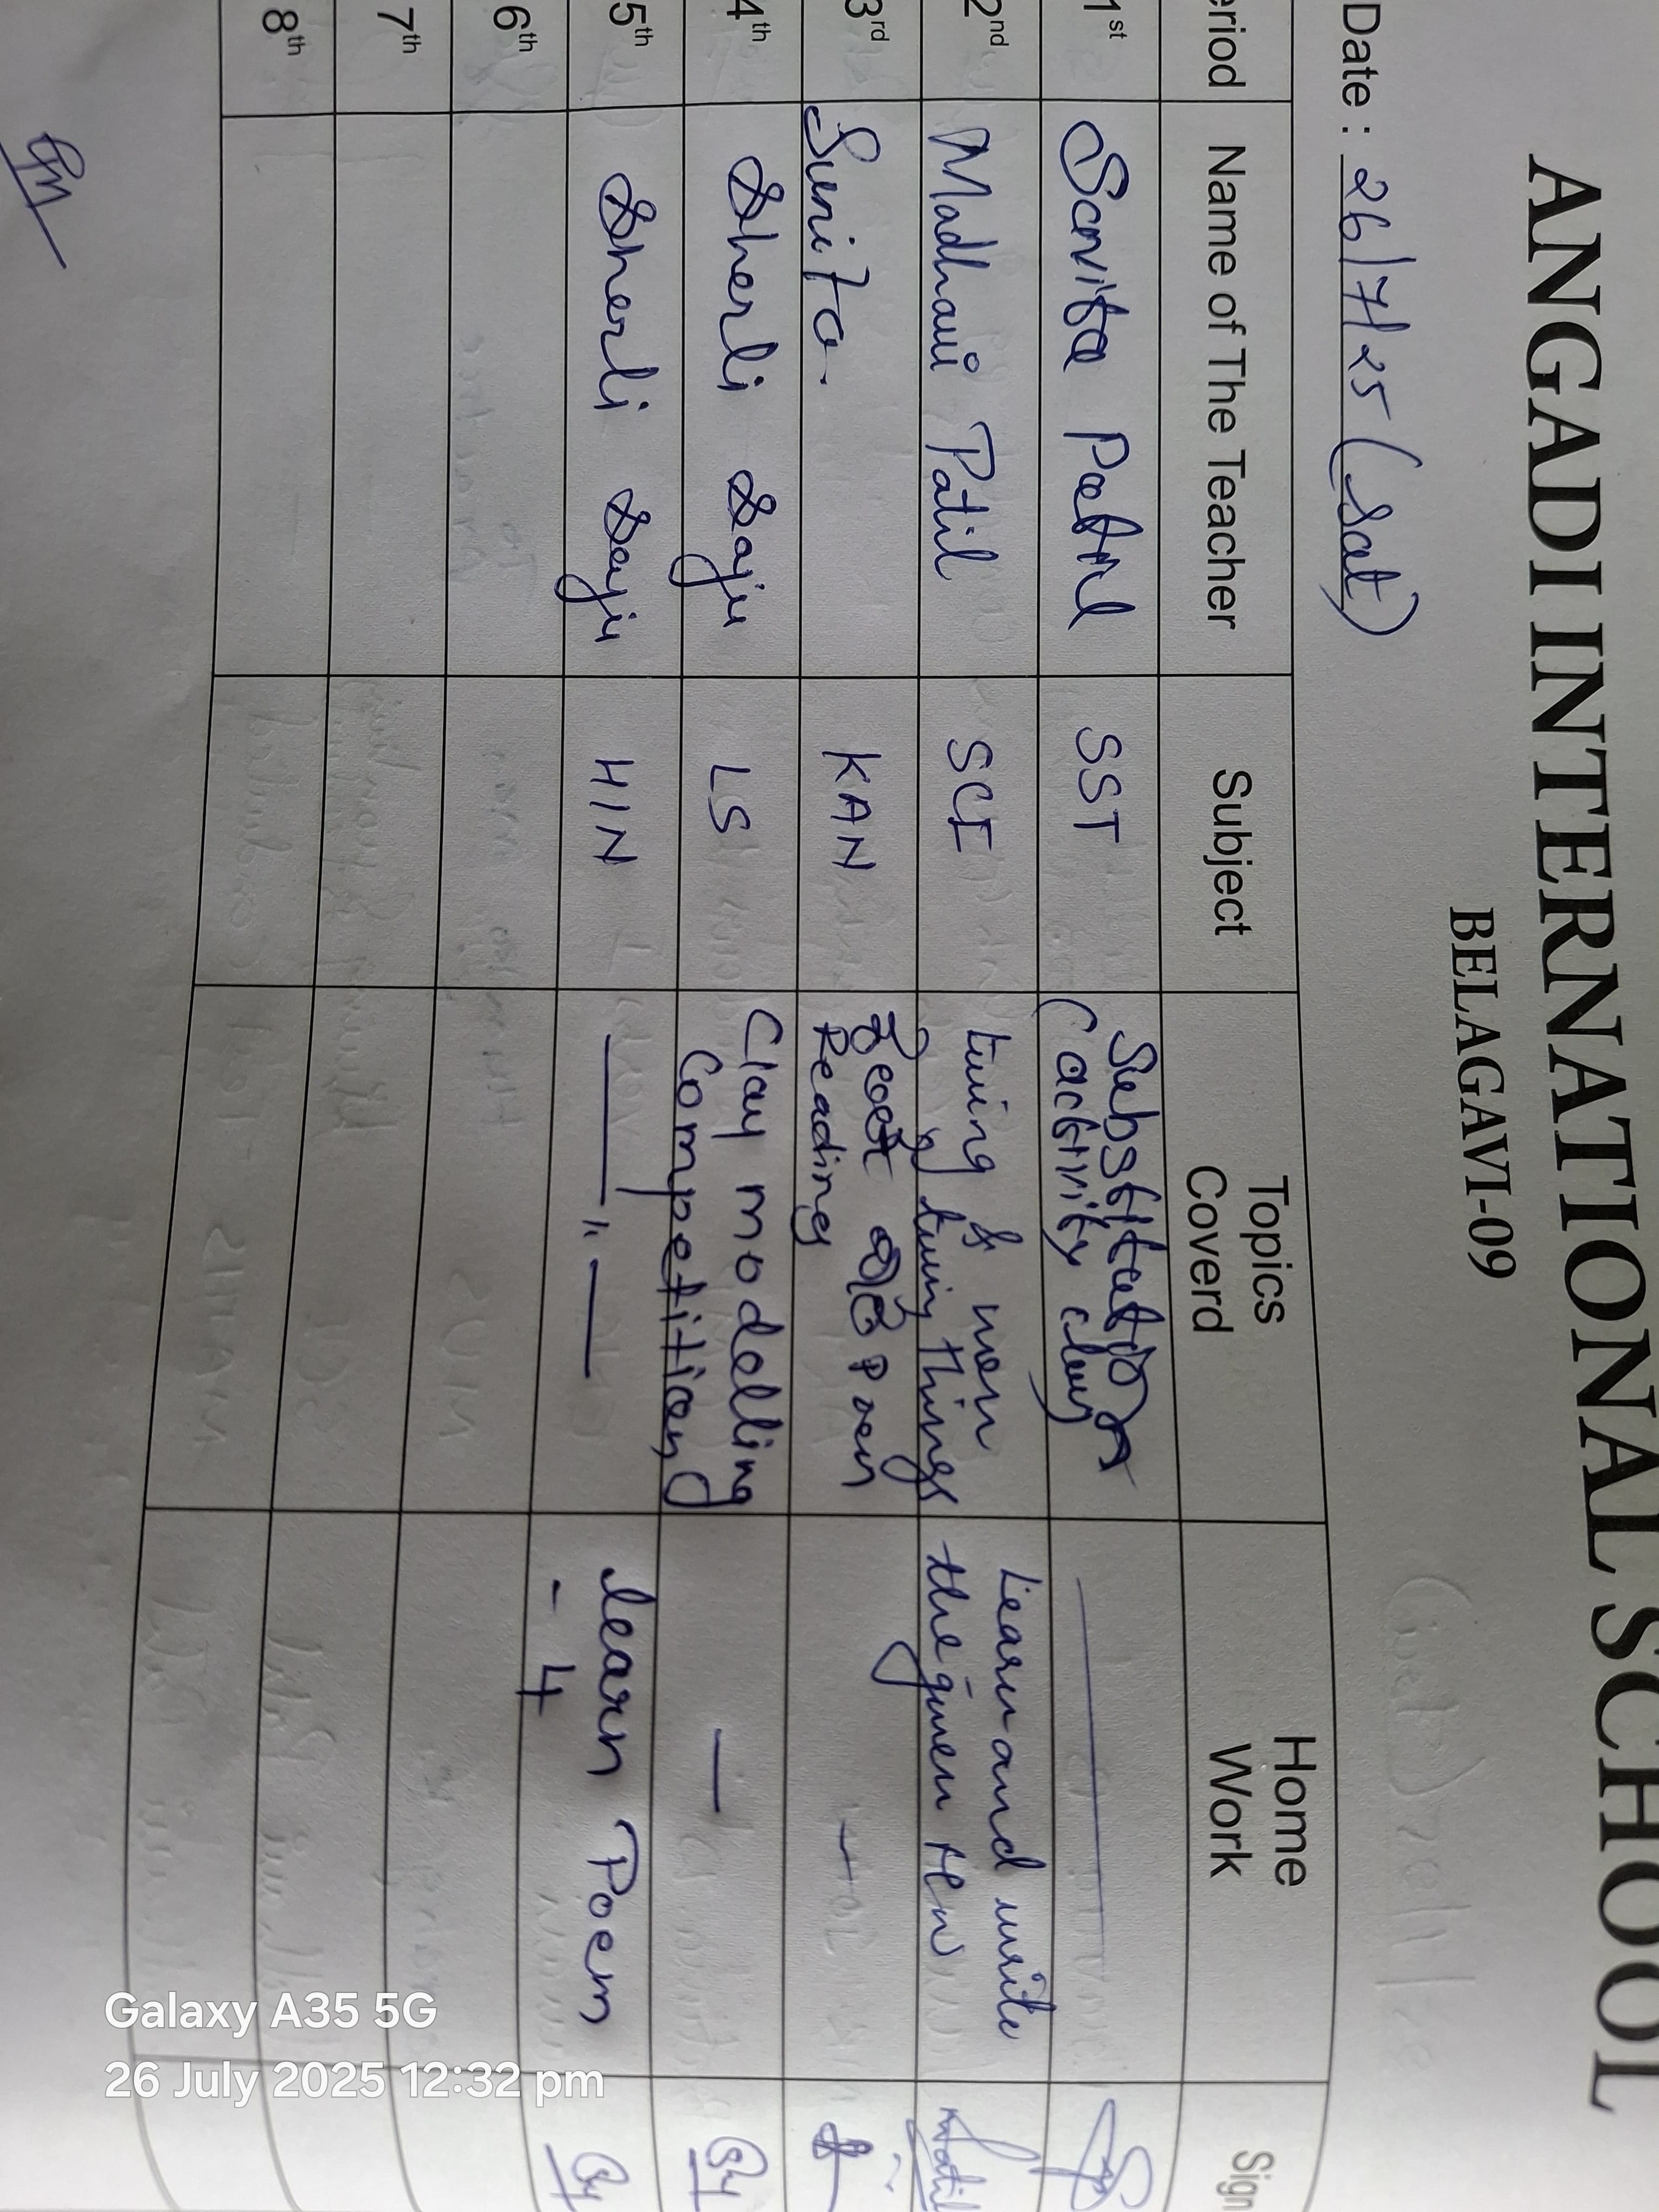 ANGADI INTERNATIONAL SCHOOL
BELAGAVI-09
Date : 26/7/25 (Sat)
eriod Name of The Teacher Subject Topics Coverd Home Work Sign
1st Savita Patil SST Substitution (activity clay)
2nd Madhavi Patil SCI Living & non living things Learn and write the given HW
3rd Sunita. KAN Reading
4th Sherli Saju LS Clay modelling Competition —
5th Sherli Saju HIN —"— learn Poem - 4
6th
7th
8th
Galaxy A35 5G
26 July 2025 12:32 pm